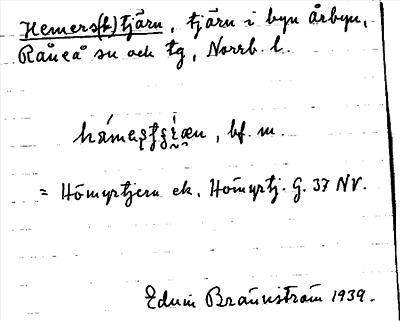 Hemers(k)tjärn, tjärn i byn Årbyn,
Råneå sn och tg, Norrb. l.
bf. m.
= Hömyrtjern ek. Hömyrtj. G. 37 NV.
Edvin Brännström 1939.